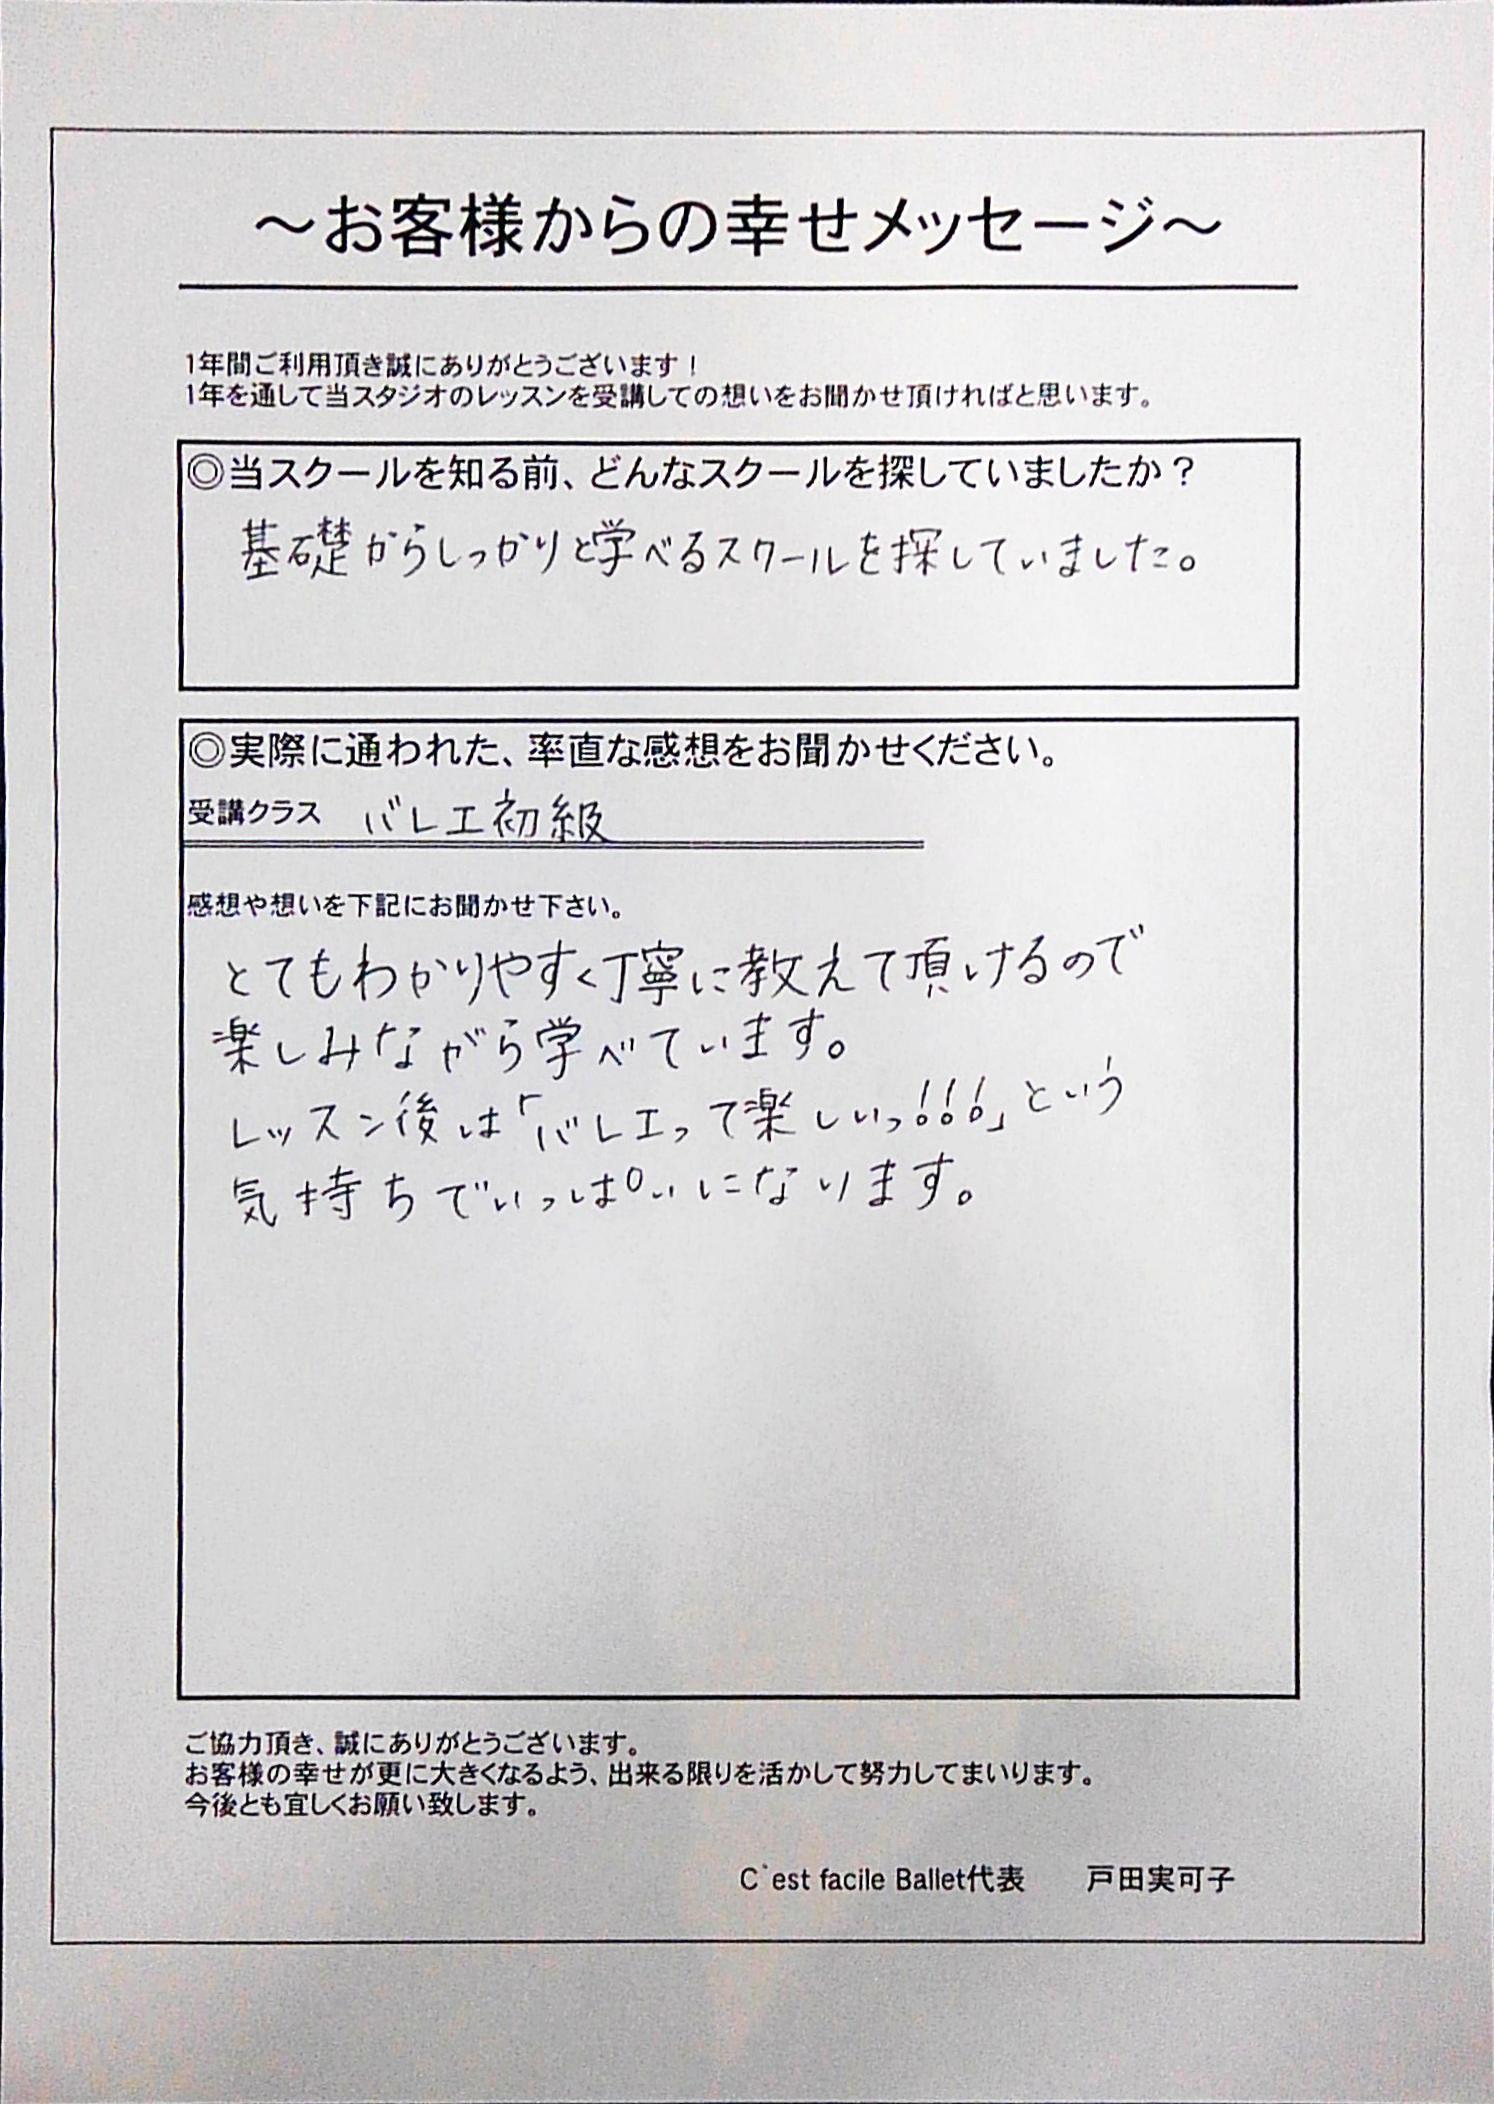 ～お客様からの幸せメッセージ～
1年間ご利用頂き誠にありがとうございます！
1年を通して当スタジオのレッスンを受講しての想いをお聞かせ頂ければと思います。
◎当スクールを知る前、どんなスクールを探していましたか？
基礎からしっかりと学べるスクールを探していました。
◎実際に通われた、率直な感想をお聞かせください。
受講クラス　バレエ初級
感想や想いを下記にお聞かせ下さい。
とてもわかりやすく丁寧に教えて頂けるので
楽しみながら学べています。
レッスン後は「バレエって楽しいっ!!!」という
気持ちでいっぱいになります。
ご協力頂き、誠にありがとうございます。
お客様の幸せが更に大きくなるよう、出来る限りを活かして努力してまいります。
今後とも宜しくお願い致します。
C`est facile Ballet代表　　戸田実可子